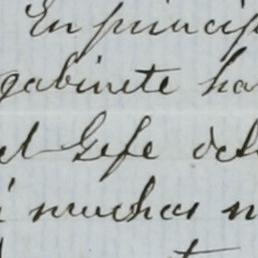 En princip
gabinete ha
el Gefe del
muchas